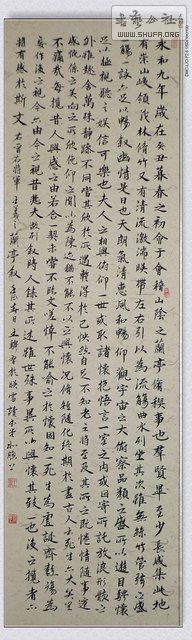 书艺公社
WWW.SHUFA.ORG
永和九年歲在癸丑暮春之初會于會稽山陰之蘭亭脩稧事也羣賢畢至少長咸集此地
有崇山峻領茂林脩竹又有清流激湍暎帶左右引以為流觴曲水列坐其次雖無絲竹管弦之盛一
觴一詠亦足以暢叙幽情是日也天朗氣清惠風和暢仰觀宇宙之大俯察品類之盛所以遊目騁懷
足以極視聽之娛信可樂也夫人之相與俯仰一世或取諸懷抱悟言一室之內或因寄所託放浪形骸之
外雖趣舍萬殊靜躁不同當其欣於所遇暫得於己怏然自足不知老之將至及其所之既惓情隨事遷
感慨係之矣向之所欣俛仰之閒以為陳迹猶不能不以之興懷況脩短隨化終期於盡古人云死生亦大矣豈
不痛哉每攬昔人興感之由若合一契未嘗不臨文嗟悼不能喻之於懷固知一死生為虛誕齊彭殤為
妄作後之視今亦由今之視昔悲夫故列叙時人錄其所述雖世殊事異所以興懷其致一也後之攬者亦
將有感於斯文 右晉右將軍王羲之蘭亭叙